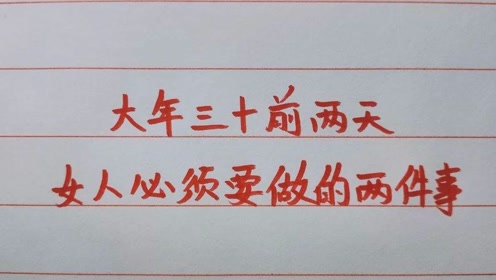 大年三十前两天
女人必须要做的两件事